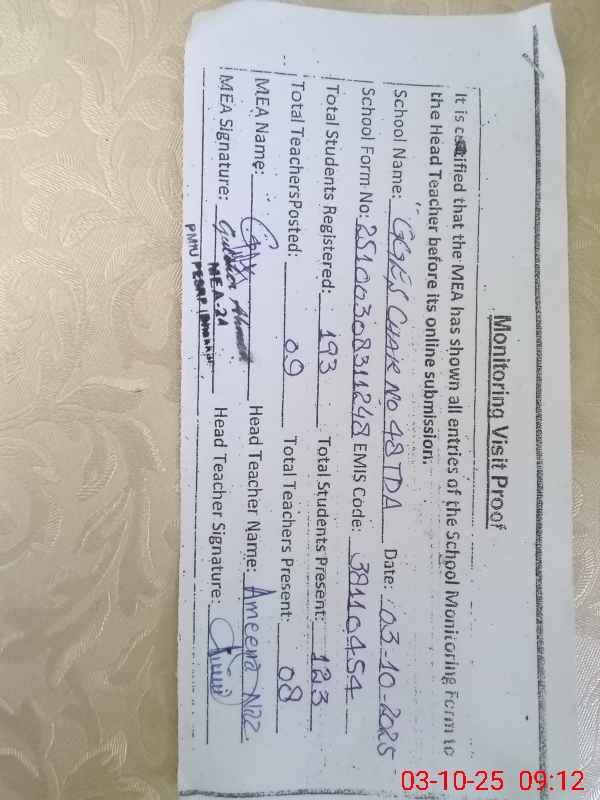 Monitoring Visit Proof
It is certified that the MEA has shown all entries of the School Monitoring Form to
the Head Teacher before its online submission.
School Name: GGES CHAK NO 48 TDA Date: 03-10-2025
School Form No: 25100308311248 EMIS Code: 38110454
Total Students Registered: 193 Total Students Present: 123
Total TeachersPosted: 09 Total Teachers Present: 08
MEA Name: Head Teacher Name: Ameena Naz
MEA Signature: Head Teacher Signature:
MEA-21
PMIU PESRP (Bhakkar)
03-10-25 09:12